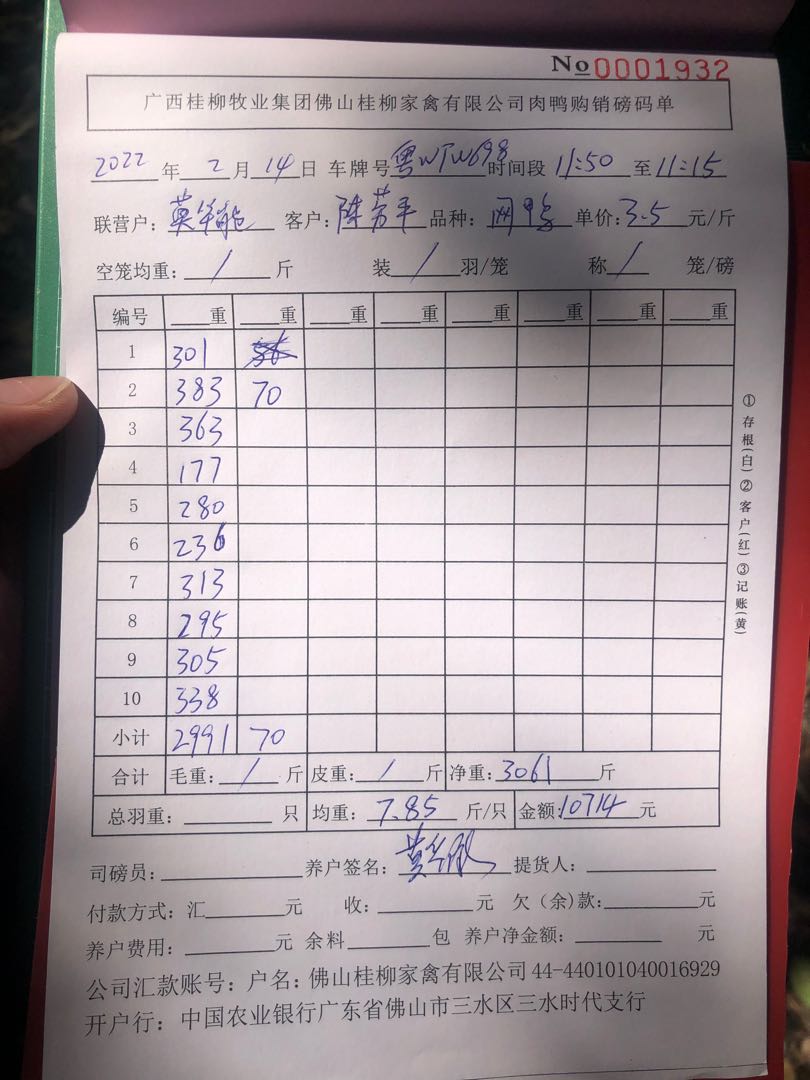 No 0001932
广西桂柳牧业集团佛山桂柳家禽有限公司肉鸭购销磅码单
2022年2月14日 车牌号粤WTW698时间段11:50至11:15
联营户: 客户:陈芳平 品种: 单价:3.5元/斤
空笼均重:/斤 装/羽/笼 称/笼/磅
编号 重 重 重 重 重 重 重 重
1 301
2 383 70
3 363
4 177
5 280
6 236
7 313
8 295
9 305
10 338
小计 2991 70
合计 毛重:/斤 皮重:/斤 净重:3061斤
总羽重: 只 均重:7.85斤/只 金额:10714元
司磅员: 养户签名: 提货人:
付款方式:汇 元 收: 元 欠(余)款: 元
养户费用: 元 余料 包 养户净金额: 元
公司汇款账号:户名:佛山桂柳家禽有限公司44-440101040016929
开户行:中国农业银行广东省佛山市三水区三水时代支行
①存根(白)②客户(红)③记账(黄)